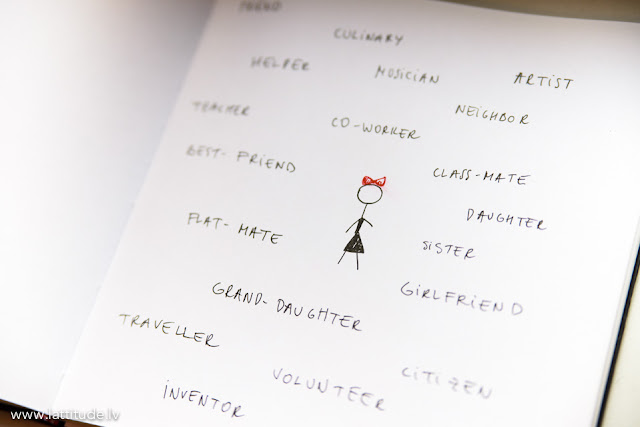 CULINARY
HELPER
MUSICIAN
ARTIST
TEACHER
CO-WORKER
NEIGHBOR
BEST-FRIEND
CLASS-MATE
DAUGHTER
FLAT-MATE
SISTER
GRAND-DAUGHTER
GIRLFRIEND
TRAVELLER
VOLUNTEER
CITIZEN
INVENTOR
www.iattitude.lv